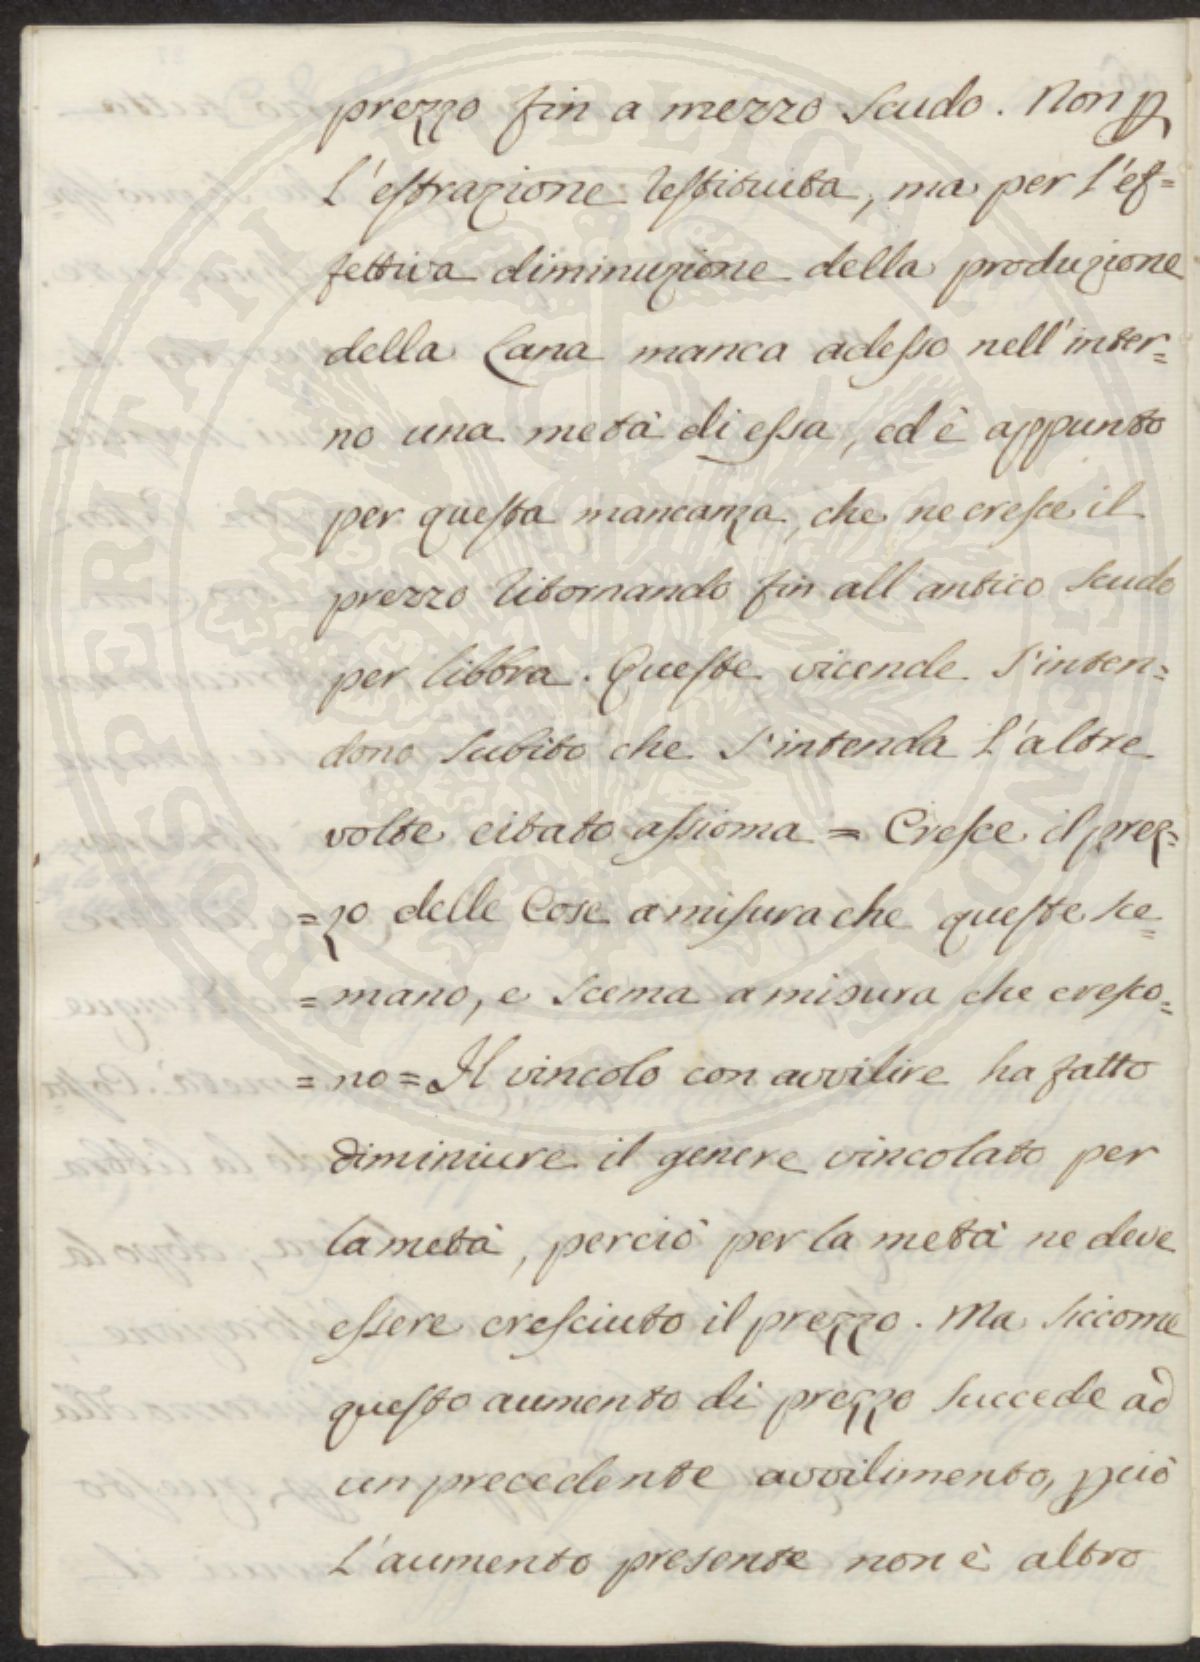 prezzo fin a mezzo Scudo. Non p
l'estrazione restituita, ma per l'ef=
fettiva diminuzione della produzione
della Lana manca adesso nell'inter=
no una metà di essa, ed è appunto
per questa mancanza, che ne cresce il
prezzo ritornando fin all'antico Scudo
per libbra. Queste vicende s'inten=
dono subito che s'intenda l'altre
volte citato assioma = Cresce il prez=
=zo delle Cose a misura che queste sce=
=mano, e scema a misura che cresco=
=no = Il vincolo con avvilire ha fatto
diminiure il genere vincolato per
la metà, perciò per la metà ne deve
essere cresciuto il prezzo. Ma siccome
questo aumento di prezzo succede ad
un precedente avvilimento, pciò
l'aumento presente non è altro
PROSPERITATI PUBLICAE AUGENDAE